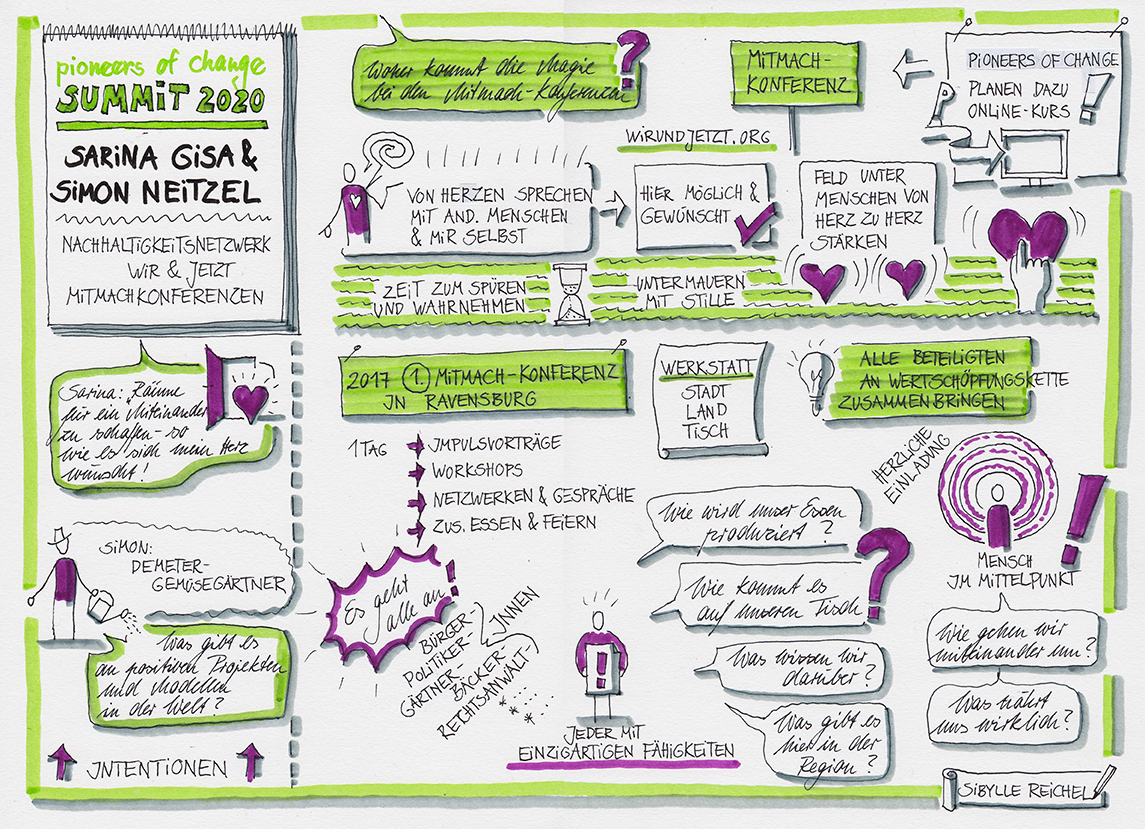 pioneers of change
SUMMIT 2020
SARINA GISA &
SIMON NEITZEL
NACHHALTIGKEITSNETZWERK
WIR & JETZT
MITMACHKONFERENZEN
Sarina: Räume
für ein Miteinander
zu schaffen - so
wie es sich mein Herz
wünscht!
SIMON:
DEMETER-
GEMÜSEGÄRTNER
Was gibt es
an positiven Projekten
und Modellen
in der Welt?
INTENTIONEN
Woher kommt die Magie
bei den Mitmach-Konferenzen
?
MITMACH-
KONFERENZ
PIONEERS OF CHANGE
PLANEN DAZU
ONLINE-KURS
!
WIRUNDJETZT.ORG
VON HERZEN SPRECHEN
MIT AND. MENSCHEN
& MIR SELBST
HIER MÖGLICH &
GEWÜNSCHT
FELD UNTER
MENSCHEN VON
HERZ ZU HERZ
STÄRKEN
ZEIT ZUM SPÜREN
UND WAHRNEHMEN
UNTERMAUERN
MIT STILLE
2017 1. MITMACH-KONFERENZ
IN RAVENSBURG
1 TAG
IMPULSVORTRÄGE
WORKSHOPS
NETZWERKEN & GESPRÄCHE
ZUS. ESSEN & FEIERN
Es geht
alle an!
BÜRGER-
POLITIKER-
GÄRTNER-
BÄCKER-
RECHTSANWALT-
INNEN
WERKSTATT
STADT
LAND
TISCH
ALLE BETEILIGTEN
AN WERTSCHÖPFUNGSKETTE
ZUSAMMENBRINGEN
HERZLICHE
EINLADUNG
MENSCH
IM MITTELPUNKT
!
Wie wird unser Essen
produziert?
Wie kommt es
auf unseren Tisch
?
Was wissen wir
darüber?
Was gibt es
hier in der
Region?
!
JEDER MIT
EINZIGARTIGEN FÄHIGKEITEN
Wie gehen wir
miteinander um?
Was nährt
uns wirklich?
SIBYLLE REICHEL